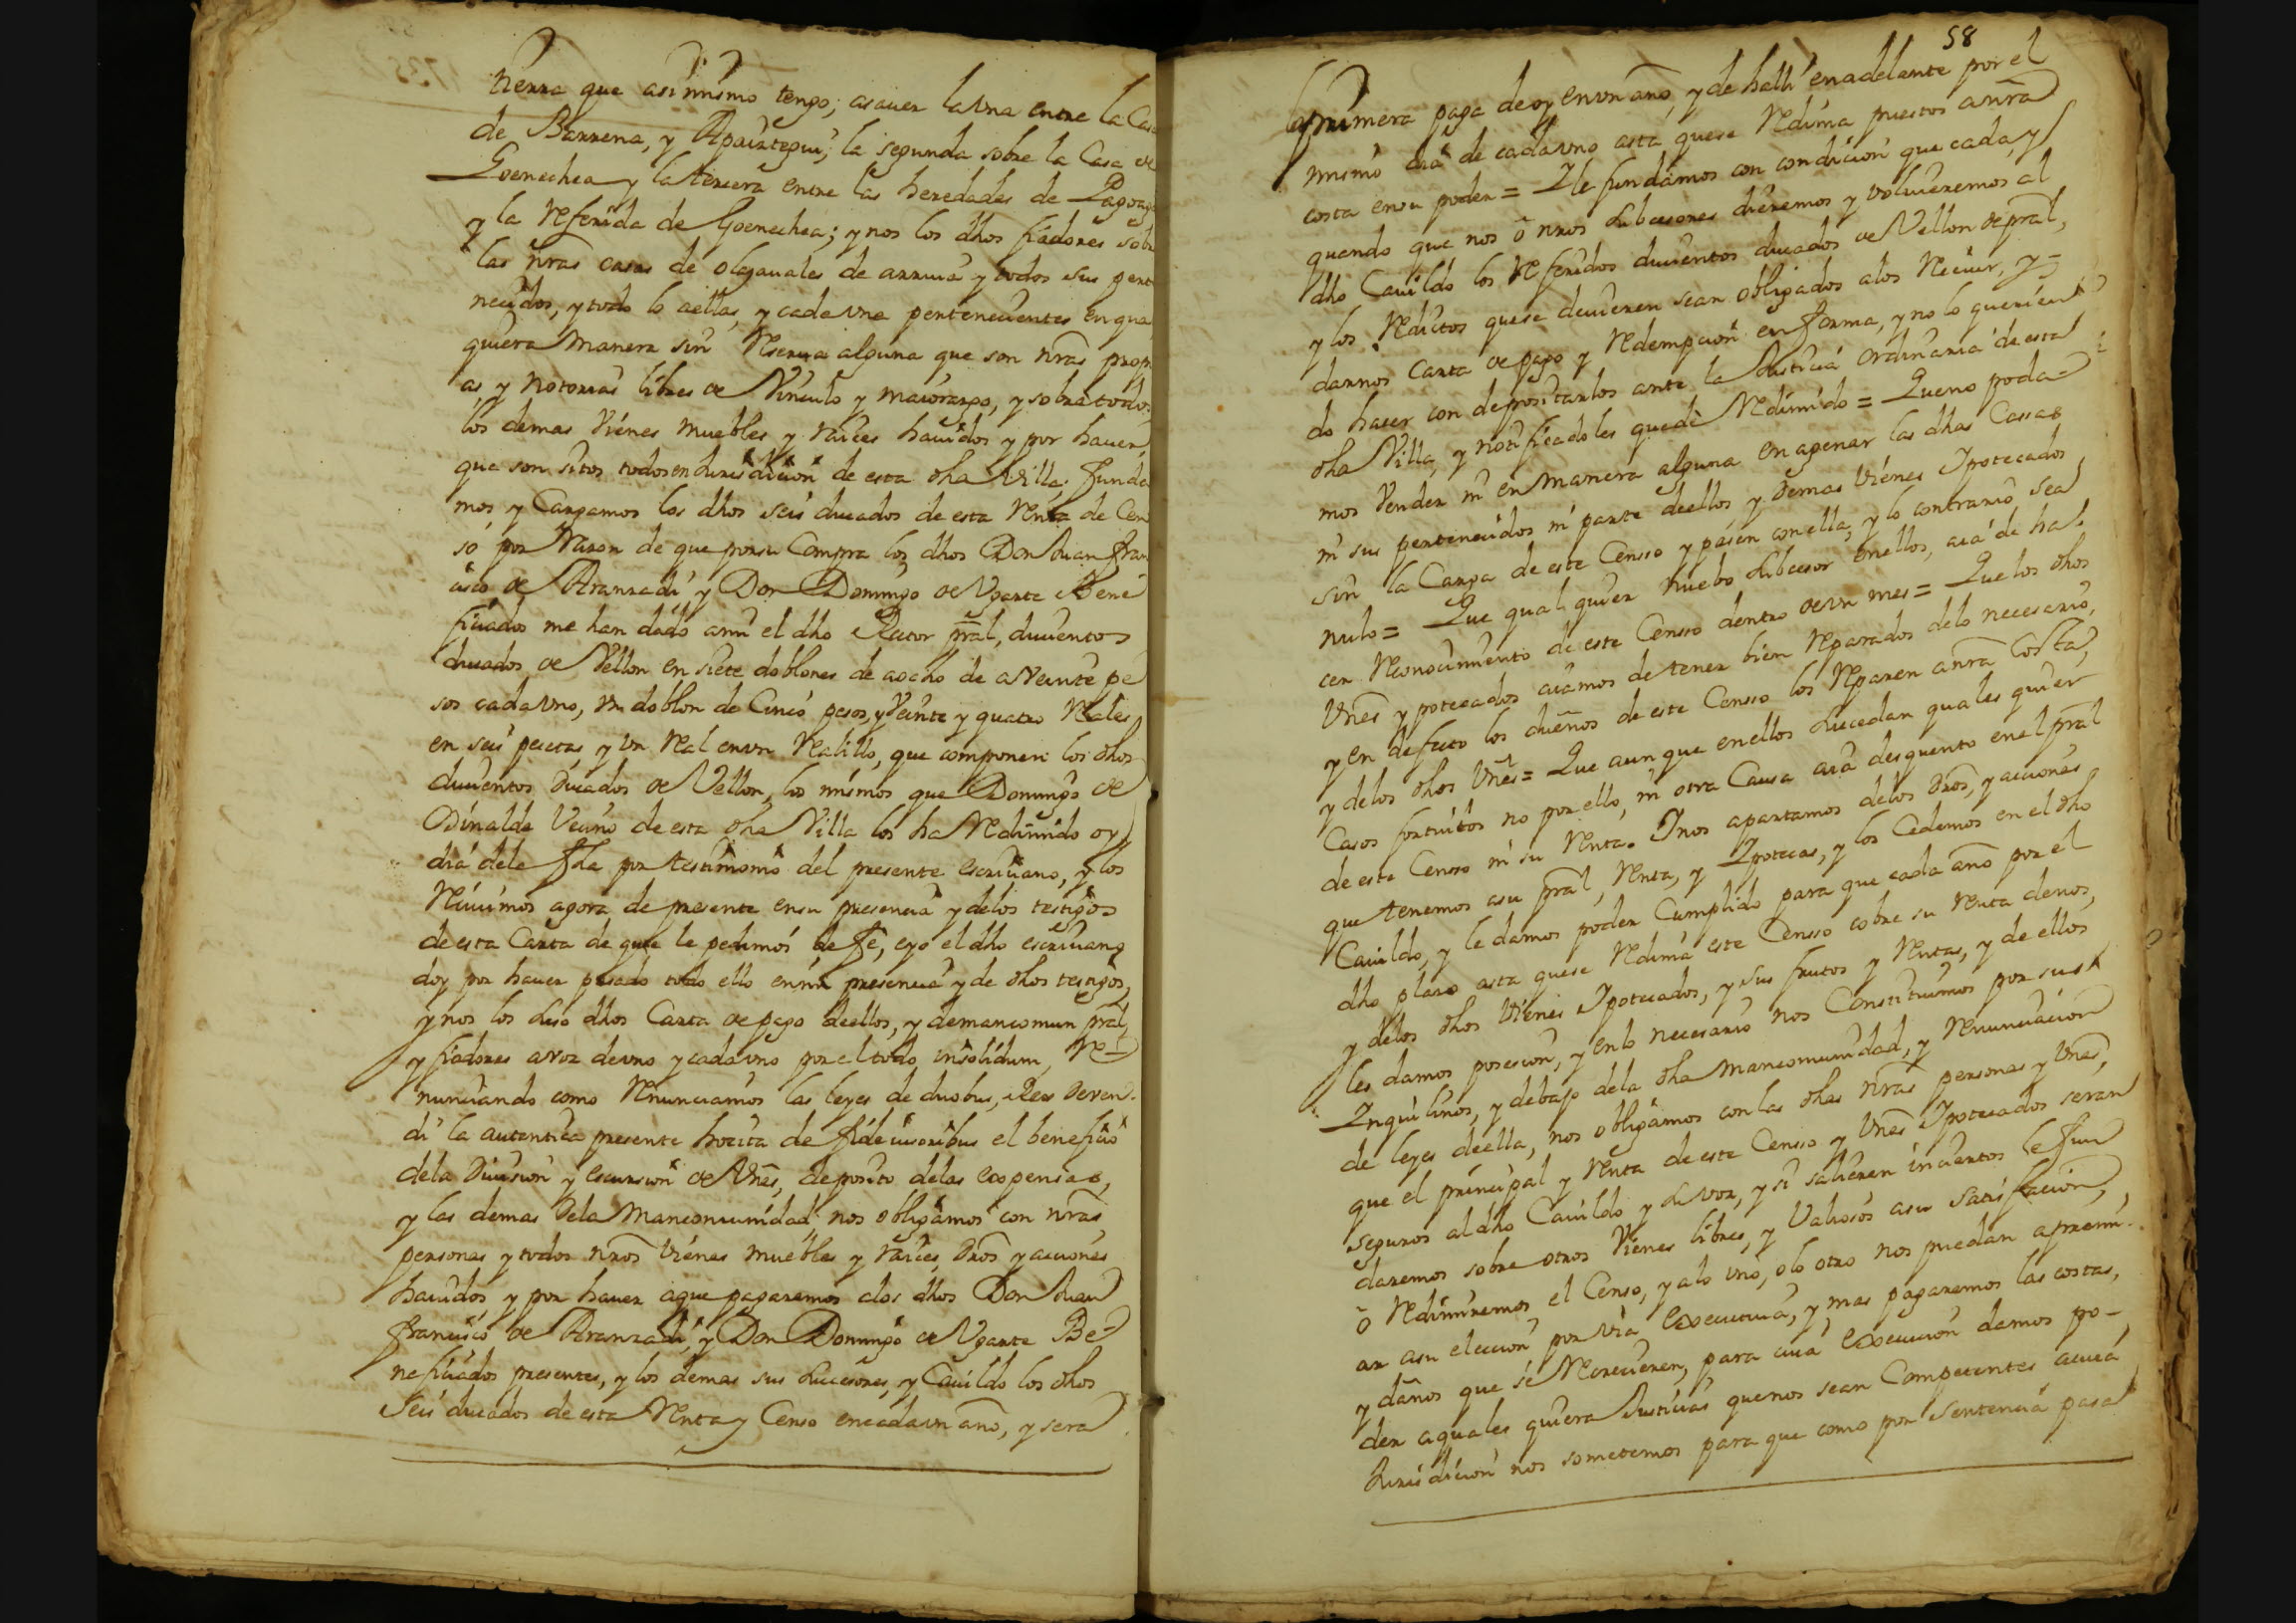 tierra que asimismo tengo; asauer la vna entre la Casa
de Barrena, y Apaiztegui; la segunda sobre la Casa de
Goenechea y la tercera entre las heredades de
y la referida de Goenechea; y nos los dhos fiadores sobre
las nras casas de olajauales de arriua y todos sus perte
necidos, y todo lo aellas, y cada vna pertenecientes en qual
quiera manera sin reserua alguna que son nras propi
as, y notorias libres de Vinculo y maiorazgo, y sobre todos
los demas vienes muebles y raices hauidos y por hauer,
que son sitos todos en Jurisdicion de esta dha Villa; funda
mos, y Cargamos los dhos seis ducados de esta renta de Cen
so por razon de que por su Compra los dhos Don Juan fran
cisco de Aranzadi y Don Domingo de Vgarte Bene
ficiados me han dado ami el dho Rector pral, ducientos
ducados de Vellon en siete doblones de aocho de aveinte pe
sos cada vno, vn doblon de Cinco pesos, y Veinte y quatro reales
en seis pecetas, y vn real en vn realillo, que componen los dhos
ducientos Ducados de Vellon, los mismos que Domingo de
Odinalde Vecino de esta dha Villa los ha redimido oy
dia dela fha por testimonio del presente escriuano, y los
reciuimos agora de presente en su presencia y delos testigos
de esta Carta de que le pedimos de fe, e yo el dho escriuano
doy por hauer pasado todo ello en mi presencia y de dhos testigos,
y nos los suso dhos Carta de pago deellos, y demancomun pral,
y fiadores avoz de vno y cada vno por el todo insolidum, re
nunciando como renunciamos las leyes de duobus, Rex deven
di la autentica presente hocita de fide iusoribus el beneficio
dela Diuision y escursion de Vnes, deposito delas expensas,
y las demas Dela mancomunidad; nos obligamos con nras
personas y todos nros vienes muebles y raices, Dros y acciones
hauidos, y por hauer aque pagaremos alos dhos Don Juan
francisco de Aranzadi, y Don Domingo de Vgarte Be
neficiados presentes, y los demas sus sucesores, y Cauildo los dhos
seis ducados de esta renta y Censo encada vn año, y sera
58
la primera paga de oy en vn año, y de halli enadelante por el
mismo dia de cada vno asta que se redima puestos anra
costa en su poder = Y le fundamos con condicion que cada y
quando que nos ô nros subcesores dieremos y volvieremos al
dho Cauildo los referidos ducientos ducados de Vellon de pral,
y los reditos que se deuieren sean obligados alos reciuir, y
darnos Carta de pago y redempcion en forma, y no lo querien
do hacer con depositarlos ante la Justicia ordinaria de esta
dha Villa, y notificadoles quede redimido = Que no poda
mos vender ni en manera alguna enagenar las dhas Cassas
ni sus pertenecidos ni parte deellos, y Demas vienes Ypotecados
sin la Carga de este Censso y pasen con ella, y lo contrario sea
nulo = Que qual quier nuebo subcesor enellos, aia de ha
cer reconocimiento de este Censso dentro de vn mes = Que los dhos
Vnes ypotecados aiamos de tener bien reparados delo necesario,
y en defecto los dueños de este Censso los reparen anra Costa,
y delos dhos Vnes = Que aun que enellos sucedan quales quier
Casos fortuitos no por ello, ni otra Causa aia desquento enel pral
de este Censso ni su renta. Y nos apartamos delos Dros, y acciones
que tenemos asu pral, renta, y Ypotecas, y los Cedemos en el dho
Cauildo, y le damos poder Cumplido para que cada año por el
dho plazo asta que se redima este Censso cobre su renta denos,
y delos dhos Vienes Ypotecados, y sus frutos y rentas, y de ellos
les damos posesion, y enlo necesario nos Constituimos por sus
Inquilinos, y debajo dela dha mancomunidad, y renunciacion
de leyes deella, nos obligamos con las dhas nras personas y Vnes,
que el principal y renta de este Censso y Vnes Ypotecados seran
seguros al dho Cauildo y su voz, y si salieren inciertos le fun
daremos sobre otros Vienes libres, y Valiosos asu satisfacion,
ô redimiremos el Censo, y alo vno, olo otro nos puedan apremi
ar asu eleccion por via executiua, y mas pagaremos las costas,
y daños que se recrecieren, para cuia execucion damos po
der aquales quiera Justicias que nos sean Competentes acuia
Jurisdicion nos sometemos para que como por sentencia pasa